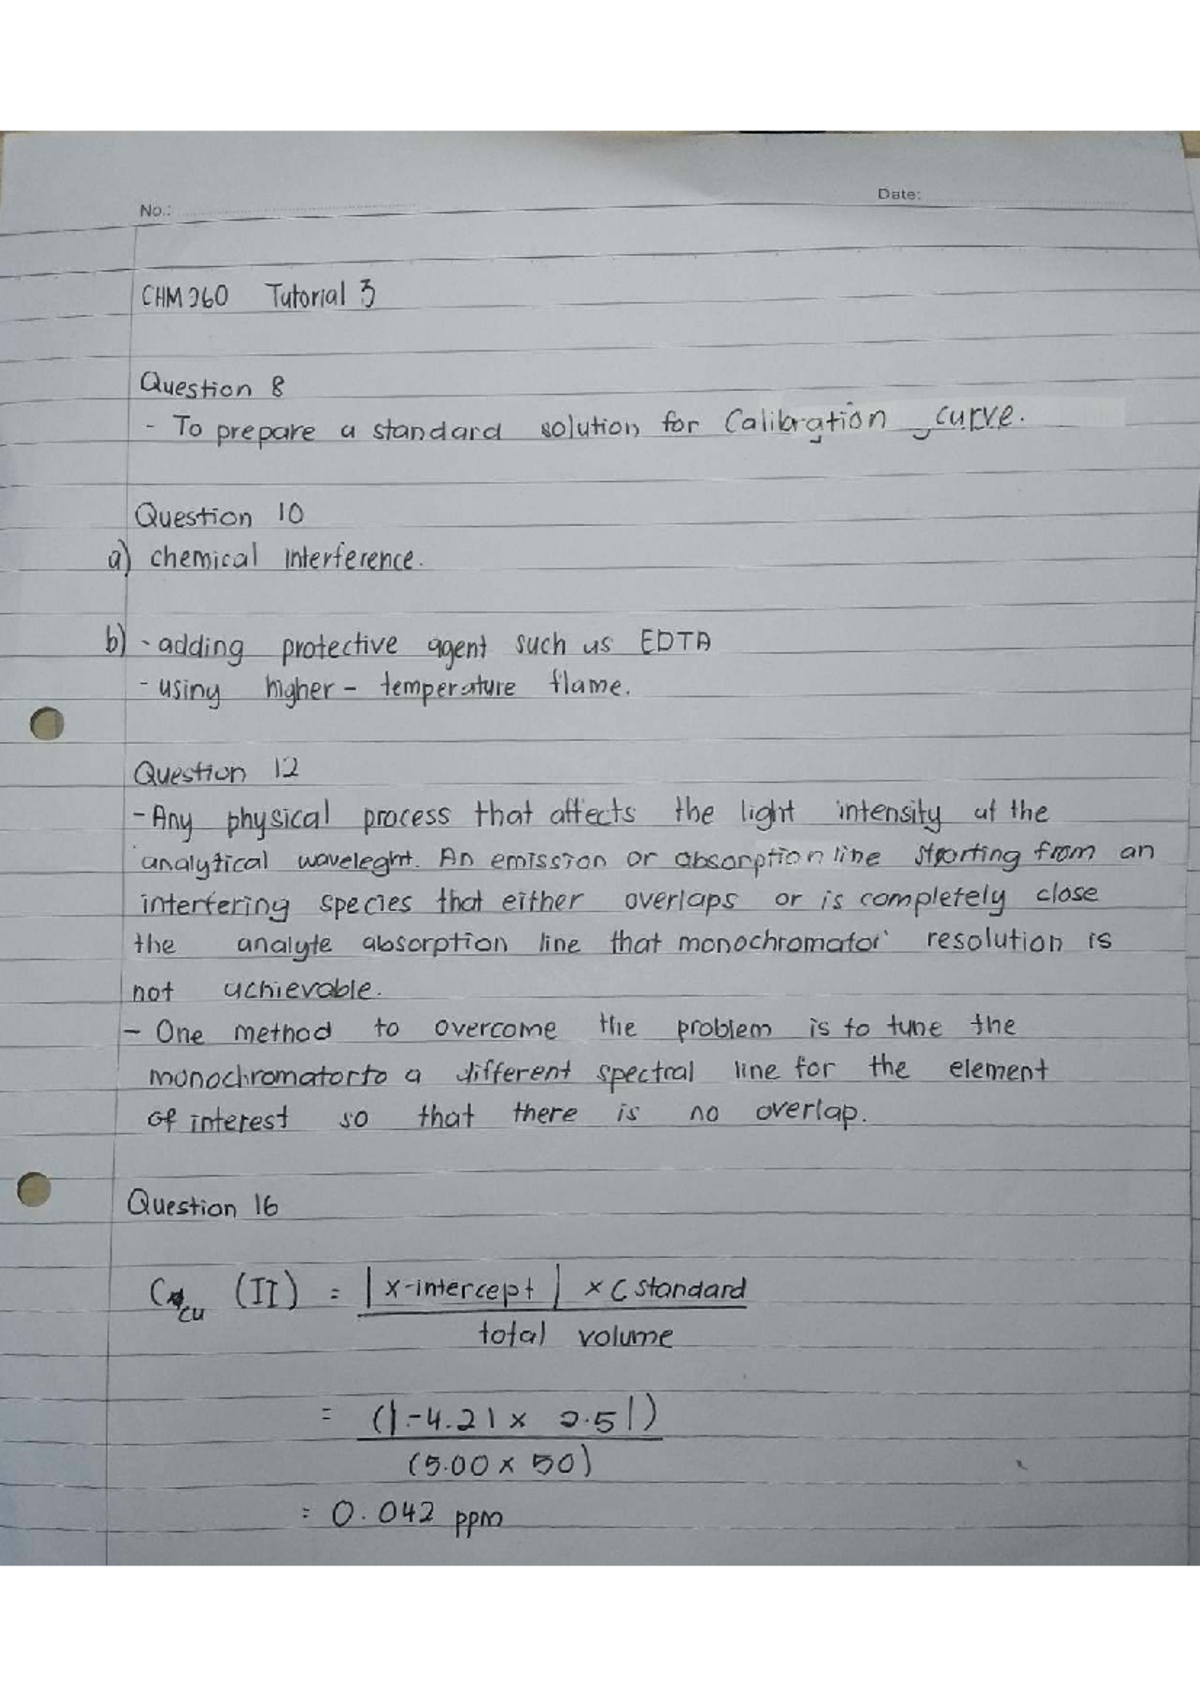 No.:
Date:
CHM260 Tutorial 3
Question 8
- To prepare a standard solution for Calibration curve.
Question 10
a) chemical interference.
b) - adding protective agent such us EDTA
- using higher - temperature flame.
Question 12
- Any physical process that affects the light intensity at the
analytical waveleght. An emission or absorption line starting from an
interfering species that either overlaps or is completely close
the analyte absorption line that monochromator resolution is
not achievable.
- One method to overcome the problem is to tune the
monochromator to a different spectral line for the element
of interest so that there is no overlap.
Question 16
C Cu (II) = |x-intercept| × C standard
total volume
= (|-4.21 × 2.5|)
(5.00 × 50)
= 0.042 ppm